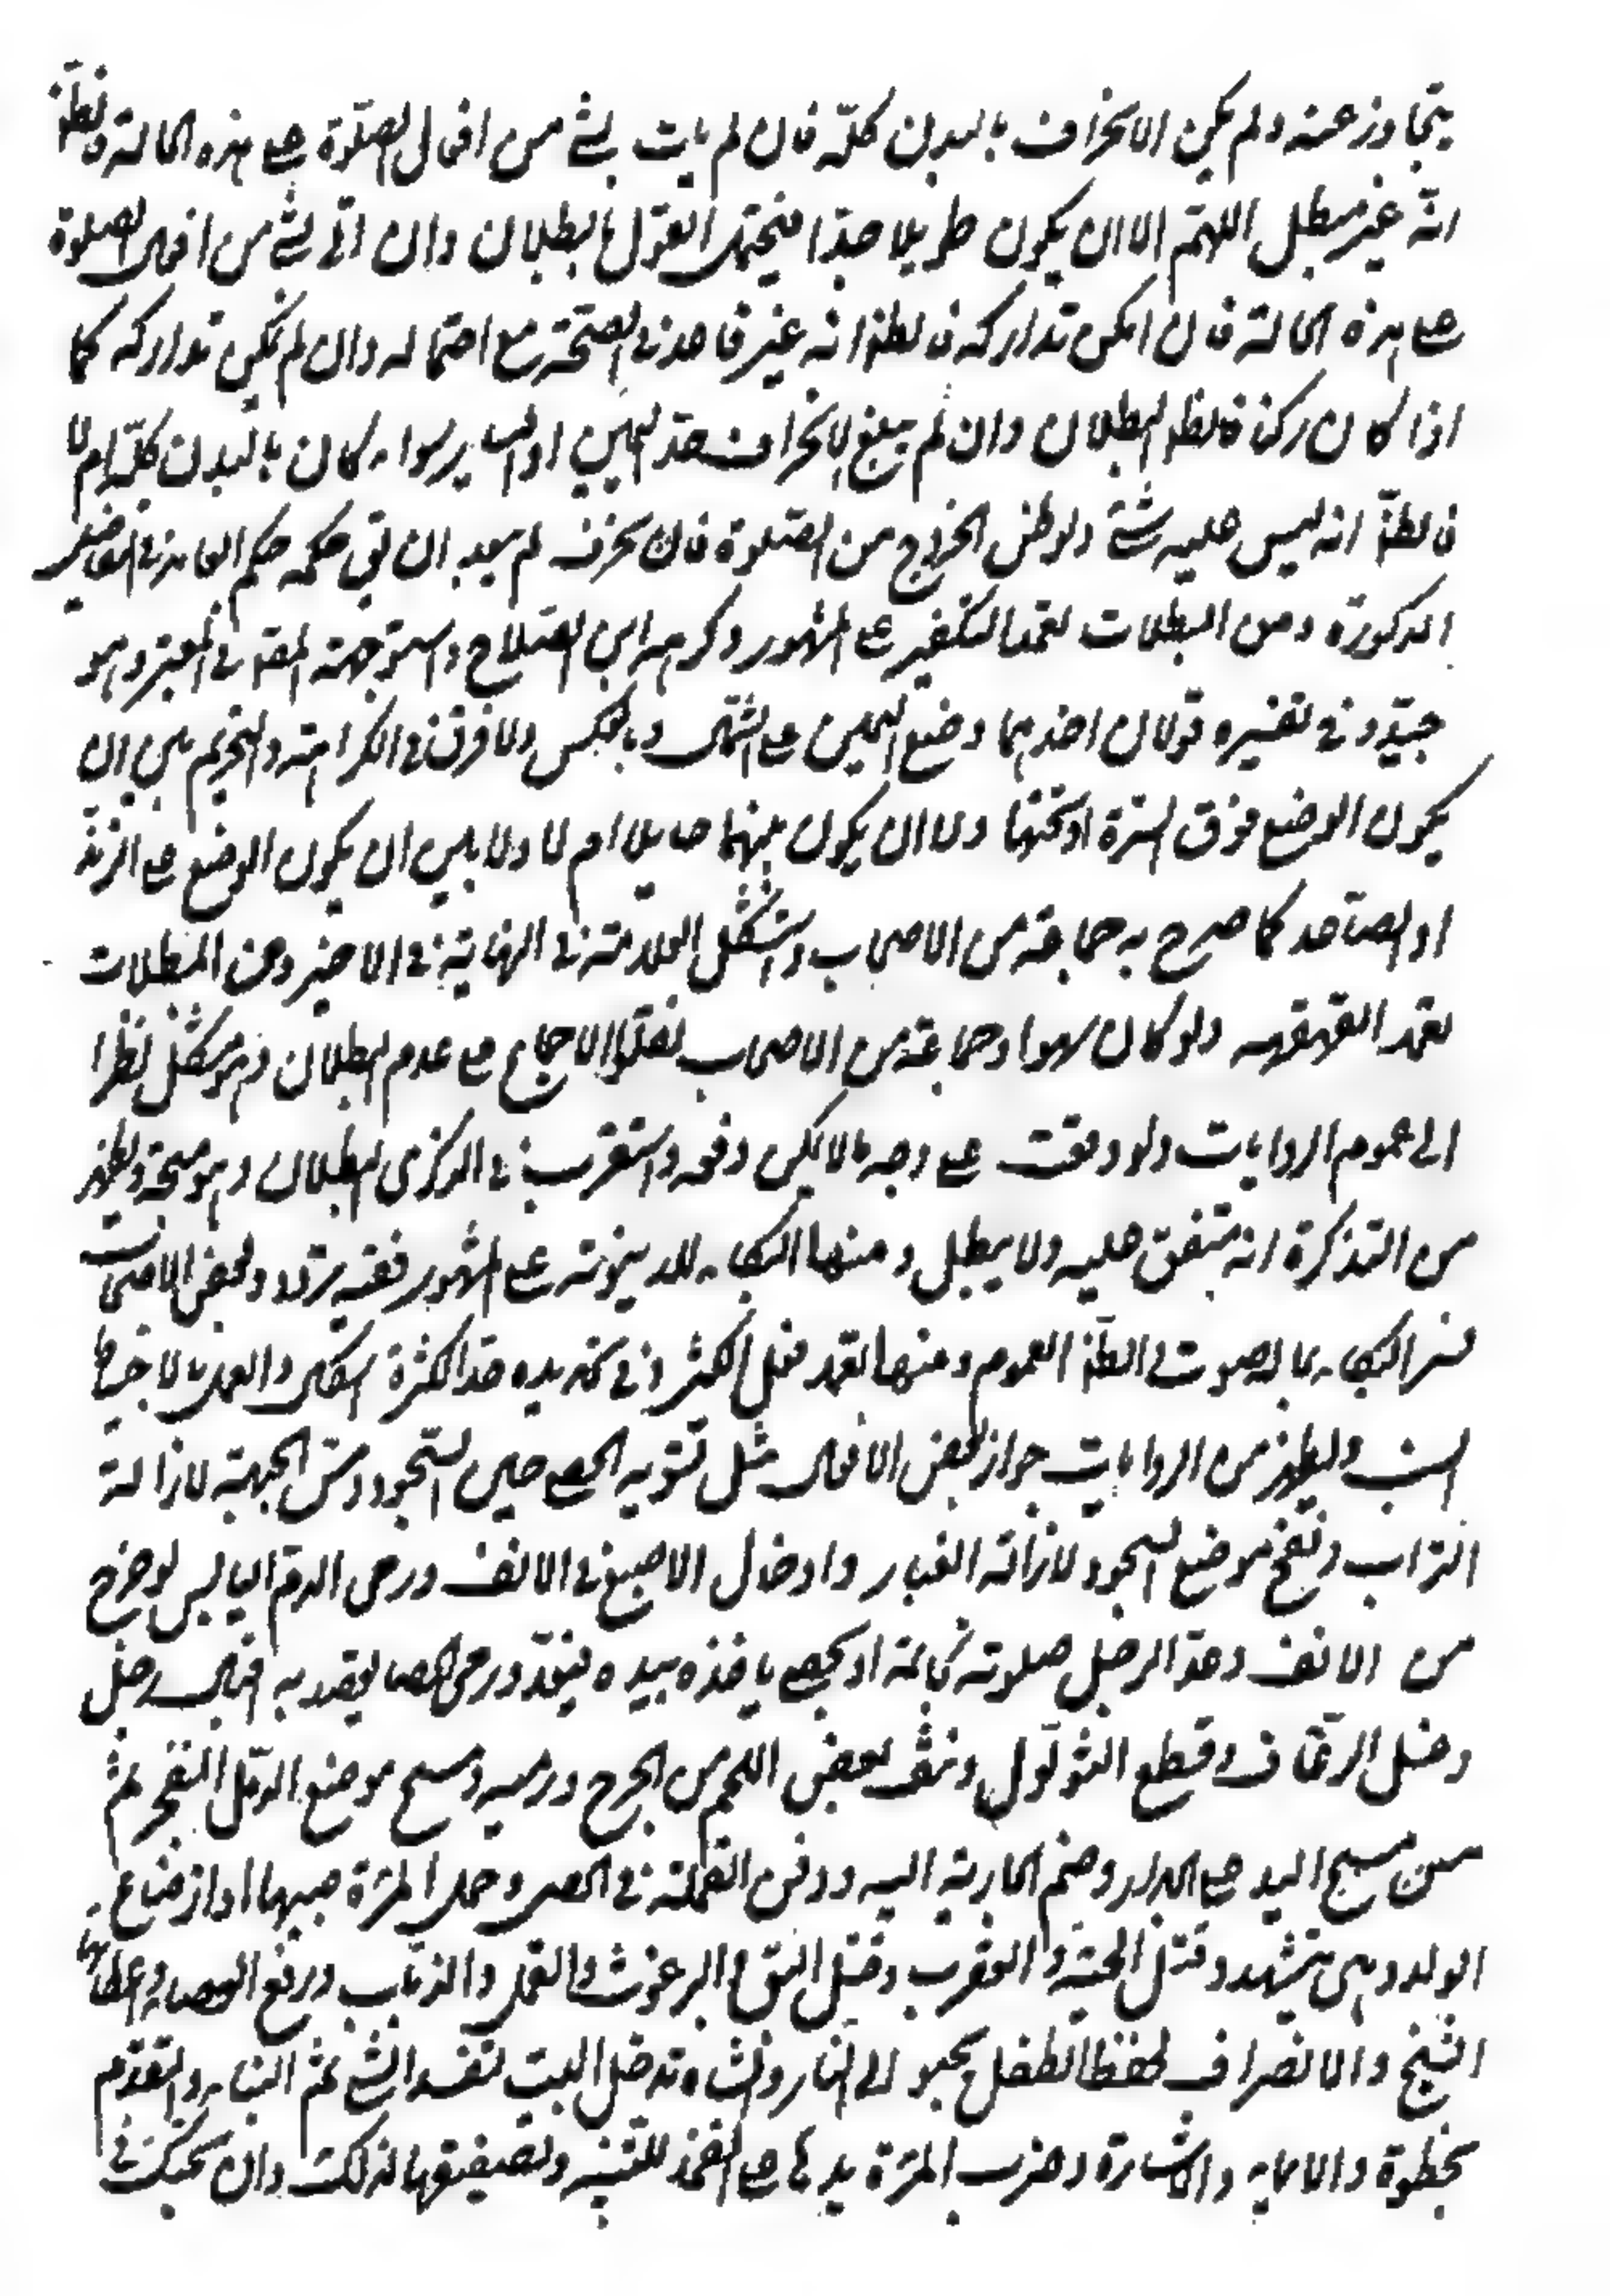 يتجاوز عنه ولم يكن الانحراف بالبدن كلّه فان لم يات بشئ من افعال الصّلوة على هذه الحالة فالظّ
انّه غير مبطل اللهمّ الا ان يكون طويلا جدّا فيحتمل القول بالبطلان وان اتى بشئ من افعال الصلوة
على هذه الحالة فان امكن تداركه فالظ انه غير قادح فى الصحّة مع احتماله وان لم يمكن تداركه كما
اذا كان ركنا فالظ البطلان وان لم يبلغ الانحراف حدّ اليمين او اليسار سواء كان بالبدن كلّه ام لا
فالظّ انه ليس عليه شئ ولو ظن الخروج من الصّلوة فانحرف لم يبعد ان يق حكمه حكم العامد فى المواضع
المذكورة ومن المبطلات تعمد التكفير على المشهور وكرهه ابن الصّلاح واستوجهه المحقق فى المعتبر وهو
جيّد وفى تفسيره قولان احدهما وضع اليمين على الشمال وبالعكس ولا فرق فى الكراهة والتحريم بين ان
يكون الوضع فوق السرّة او تحتها ولا ان يكون بينهما حايلا ام لا ولا بين ان يكون الوضع على الزند
او الساعد كما صرح به جماعة من الاصحاب واستشكل العلامة فى النهاية فى الاخير ومن المبطلات
تعمد القهقهه ولو كان سهوا وجماعة من الاصحاب نقلوا الاجماع على عدم البطلان وهو مشكل نظرا
الى عموم الروايات ولو وقعت على وجه لا يمكن دفعه واستقرب فى الذكرى البطلان وهو متجه ويظهر
من التذكرة انه متفق عليه ولا يبطل ومنها البكاء للدنيوية على المشهور ففيه تردد وبعض الاصحاب
فسر البكاء بما له صوت والظّ العموم ومنها تعمد فعل الكثير وفى تحديده حد الكثرة اشكال والعمل بالاحتياط
انسب ويظهر من الروايات جواز بعض الافعال مثل تسويه الحصى حين السّجود ومسّ الجبهة لازالة
التراب ونفخ موضع السجود لازالة الغبار وادخال الاصبع فى الانف ورمى الدم اليابس لو خرج
من الانف وعدّ الرجل صلوته بخاتمه او بحصى ياخذه بيده فيعدّ ورمى الحصا يقصد به اقبال رجل
وغسل الرّعاف وقطع الثؤلول ونتف بعض اللحم من الجرح ورميه ومسح موضع الدمّل المنفجر ثم
مسح اليد على الجدار وضم الجارية اليه ودفن القملة فى الحصى وحمل المرئة صبيها او ارضاع
الولد وهى تتشهد وقتل الحيّة والعقرب وقتل البق والبرغوث والقمل والذباب ورفع العصا واعطائها
الشيخ والانصراف لحفظ الطفل يحبو الى النار والشاه تدخل البيت لتفسد الشئ ثم البناء والتقدم
بخطوة والايماء والاشارة وضرب المرئة يدها على الفخذ للتنبيه وتصفيقها لذلك وان تحتك فى